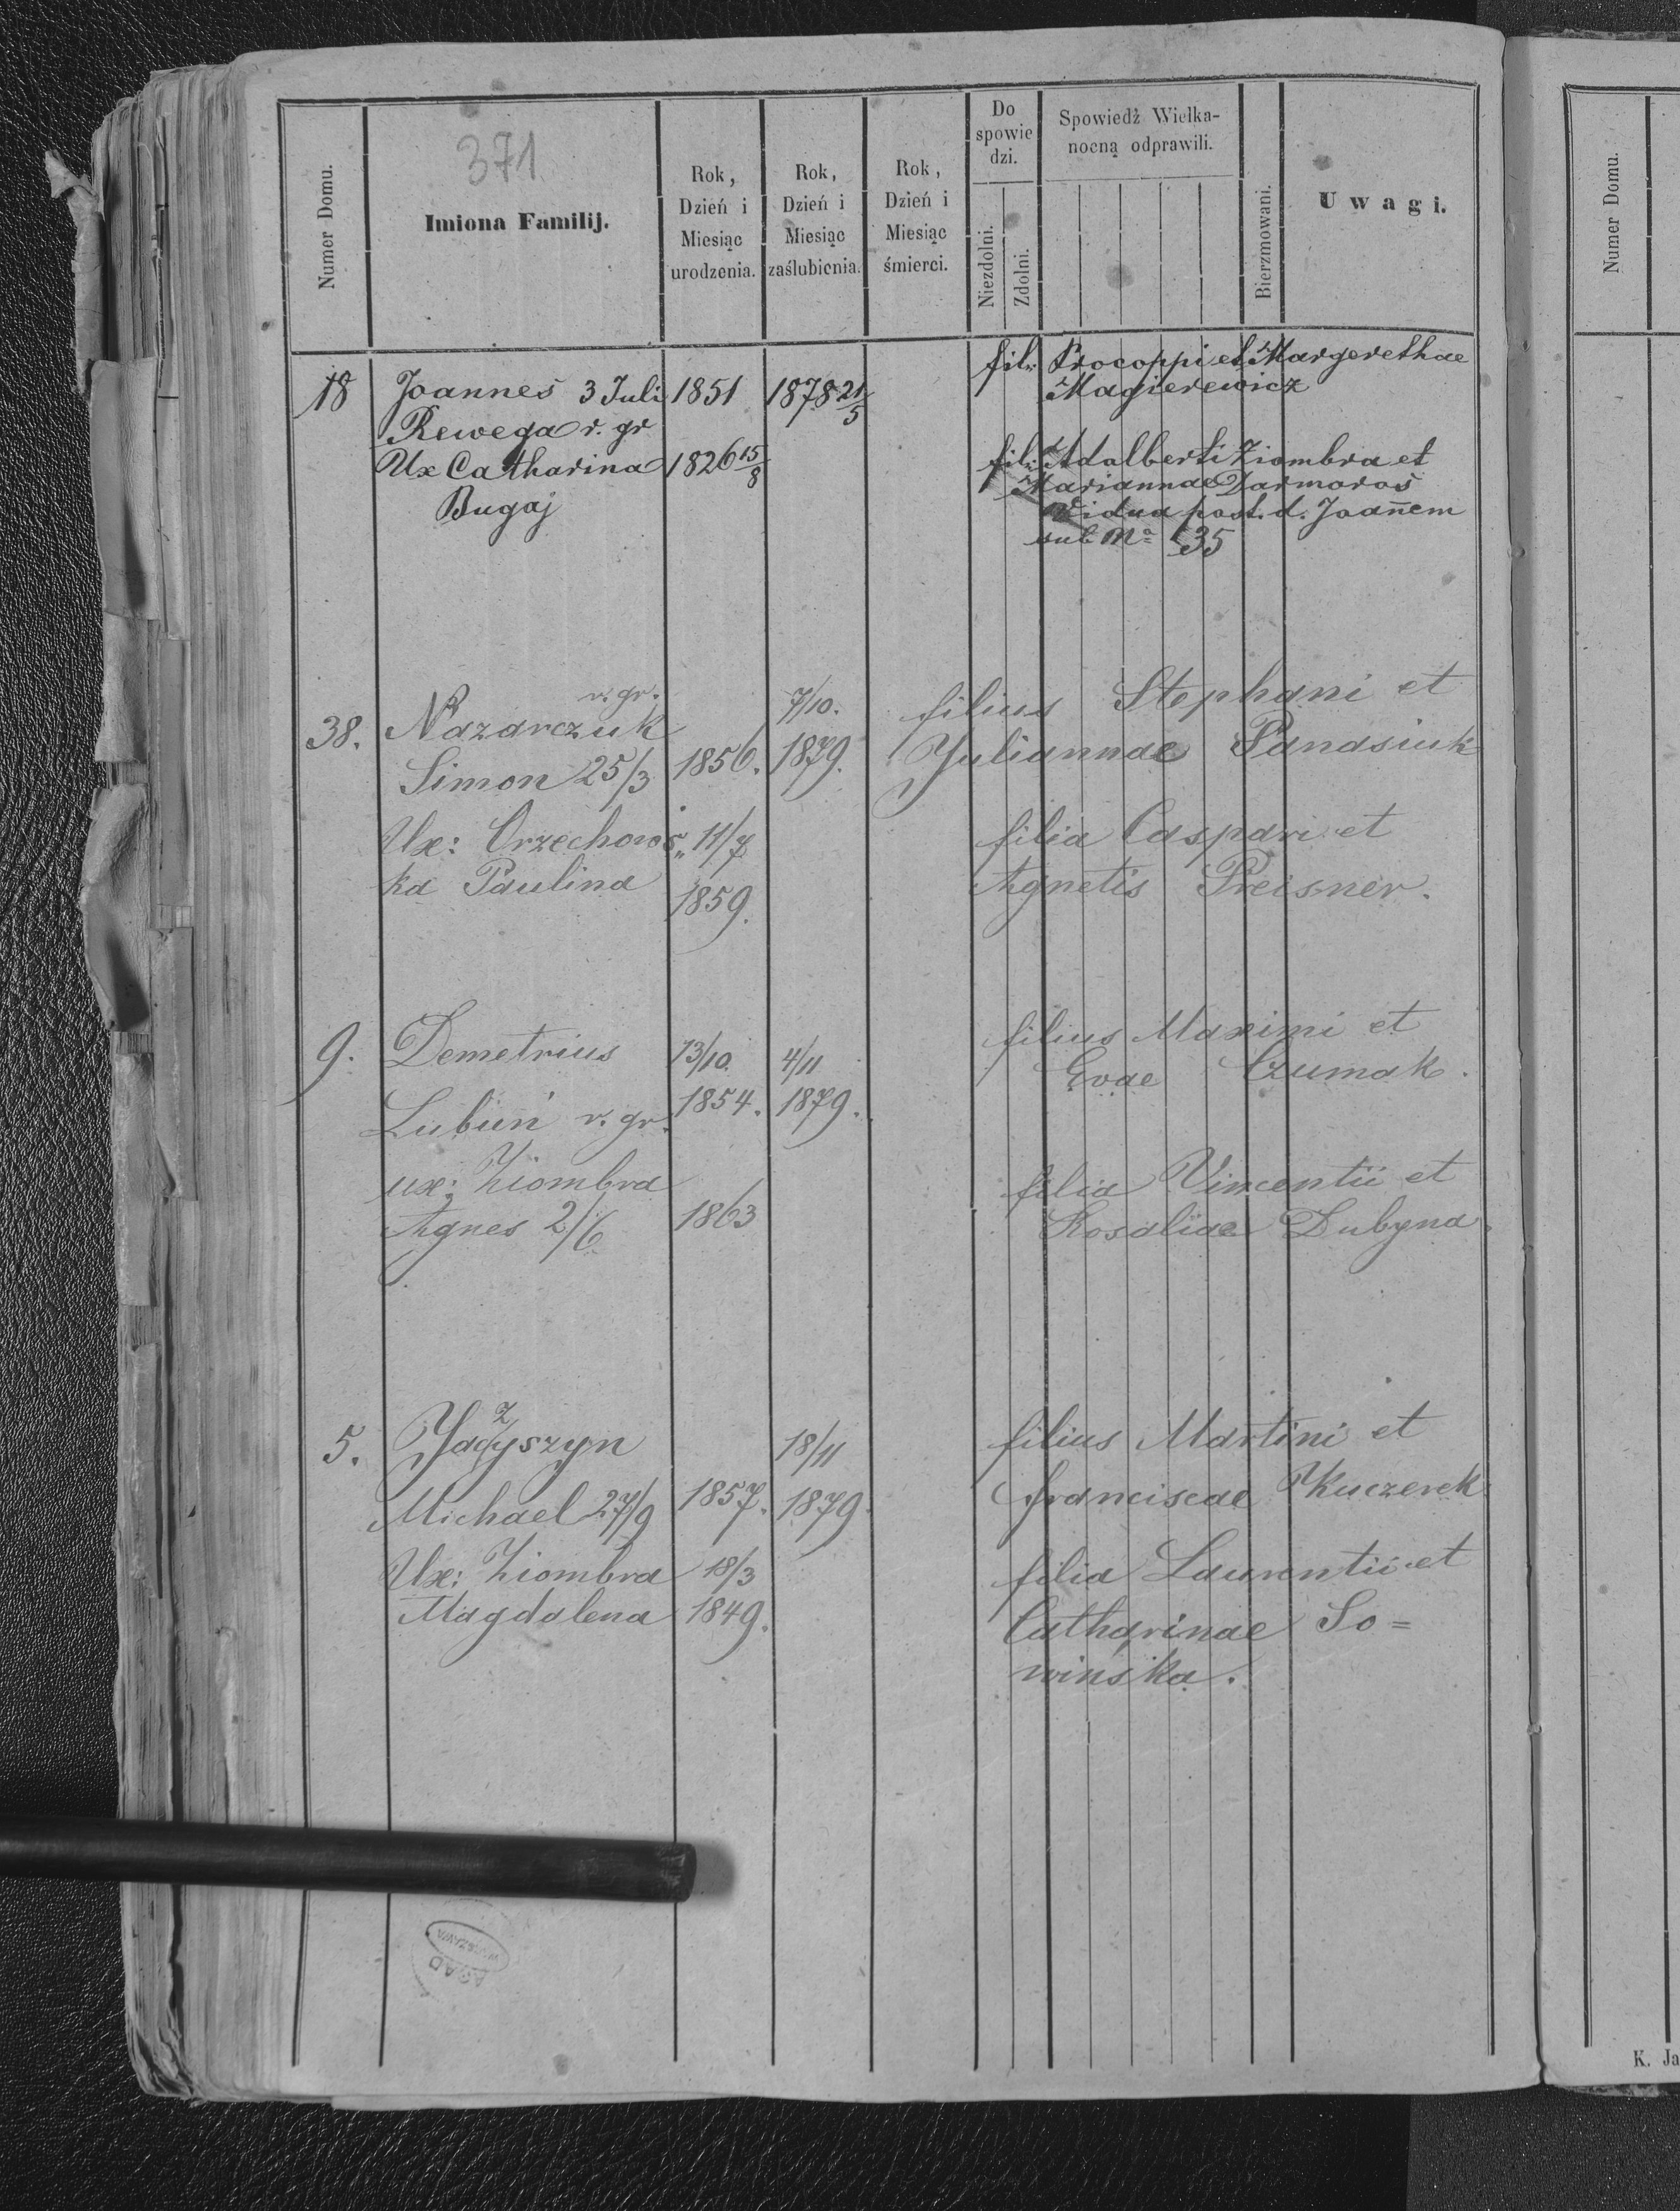 371
Numer Domu.
Imiona Familij.
Rok, Dzień i Miesiąc urodzenia.
Rok, Dzień i Miesiąc zaślubienia.
Rok, Dzień i Miesiąc śmierci.
Do spowie dzi.
Niezdolni.
Zdolni.
Spowiedź Wielka-
nocną odprawili.
Bierzmowani.
Uwagi.
Numer Domu.
fil: Procoppi et Margerethae
18 Joannes 3 Juli 1851 1878 21/5 Magierewicz
Rewega r. gr
Ux Catharina 1826 15/8 fil: Adalberti Ziombra et
Bugaj Mariannae Darmoroś
Vidua post. d. Joan̄em
sub Nᵒ 35
r. gr. 7/10. filius Stephani et
38. Nazarczuk
Simon 25/3 1856. 1879. Yuliannae Panasiuk
Ux: Orzechows„ 11/7 filia Caspari et
ka Paulina 1859. Agnetis Preisner.
9. Demetrius 13/10. 4/11 filius Maximi et
Lubuń r. gr. 1854. 1879. Evae Czumak.
ux: Ziombra filia Vincentii et
Agnes 2/6 1863 Rosaliae Dubyna.
z
5. Yadyszyn 18/11 filius Martini et
Michael 27/9 1857. 1879. Franciscae Kuczerek
Ux: Ziombra 18/3 filia Laurentii et
Magdalena 1849. Catharinae So=
winska.
AGAD
WARSZAWA
K. Ja